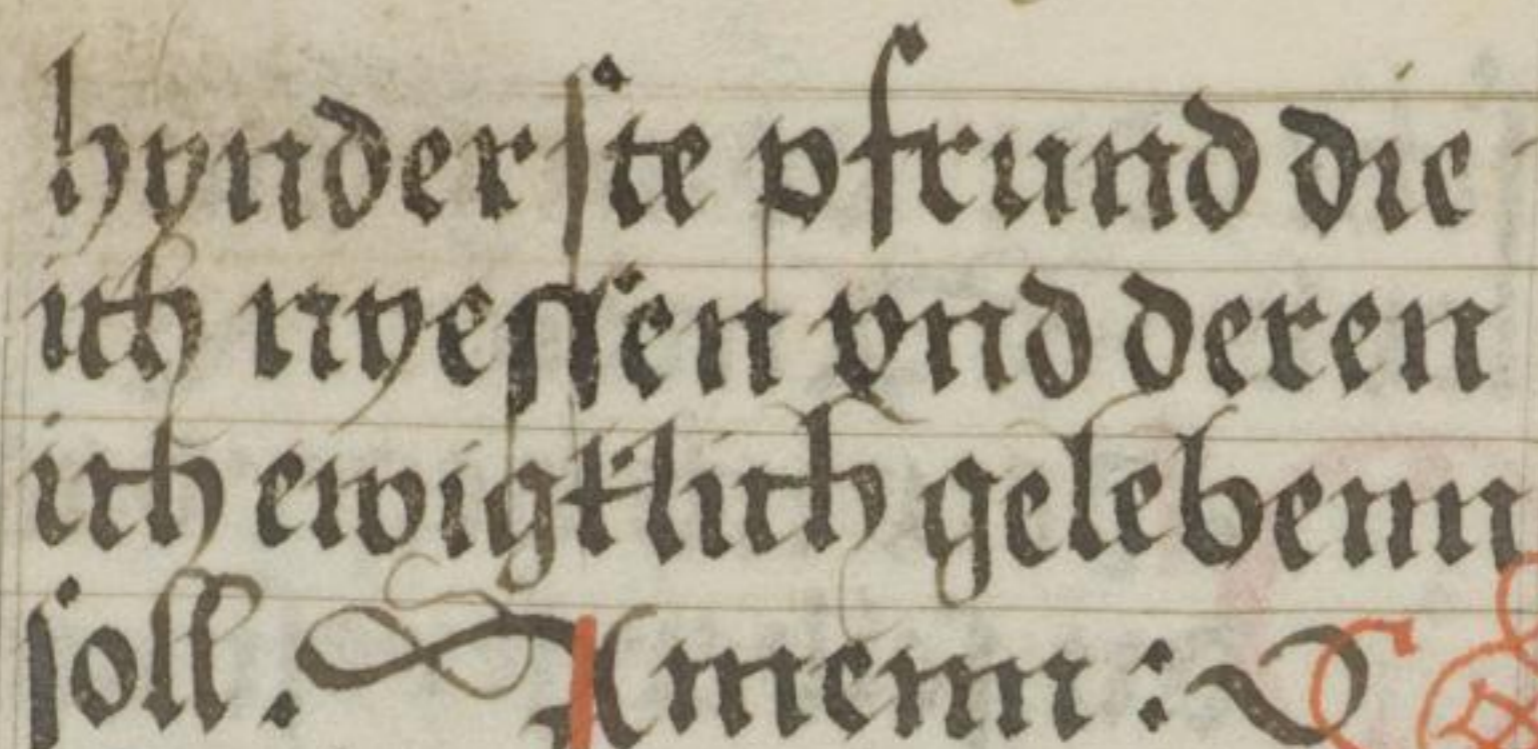 hynderste pfrund die
ich nyessen vnd deren
ich ewigklich gelebenn
soll. Amenn :